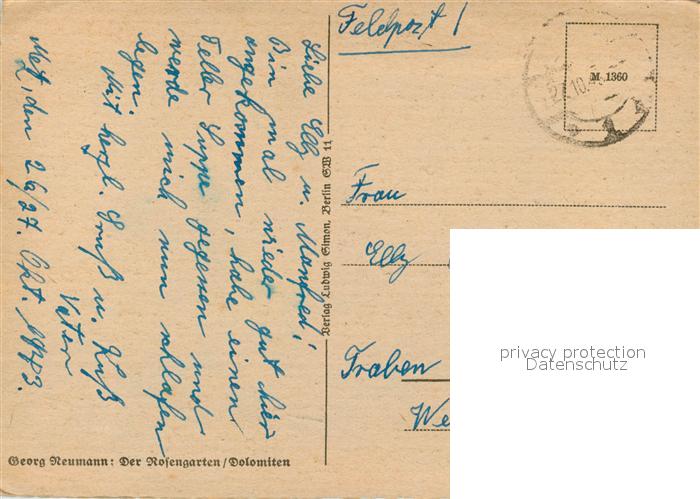 Metz, den 26/27. Okt. 1943.
Liebe Elly u. Manfred!
Bin mal wieder gut hier
angekommen, habe einen
Teller Suppe gegessen und
werde mich nun schlafen
legen.
Mit herzl. Gruß u. Kuß
Vater
Georg Neumann: Der Rosengarten/Dolomiten
Verlag Ludwig Simon, Berlin SW 11
Feldpost!
M 1360
Frau
Elly
Traben
We
privacy protection
Datenschutz